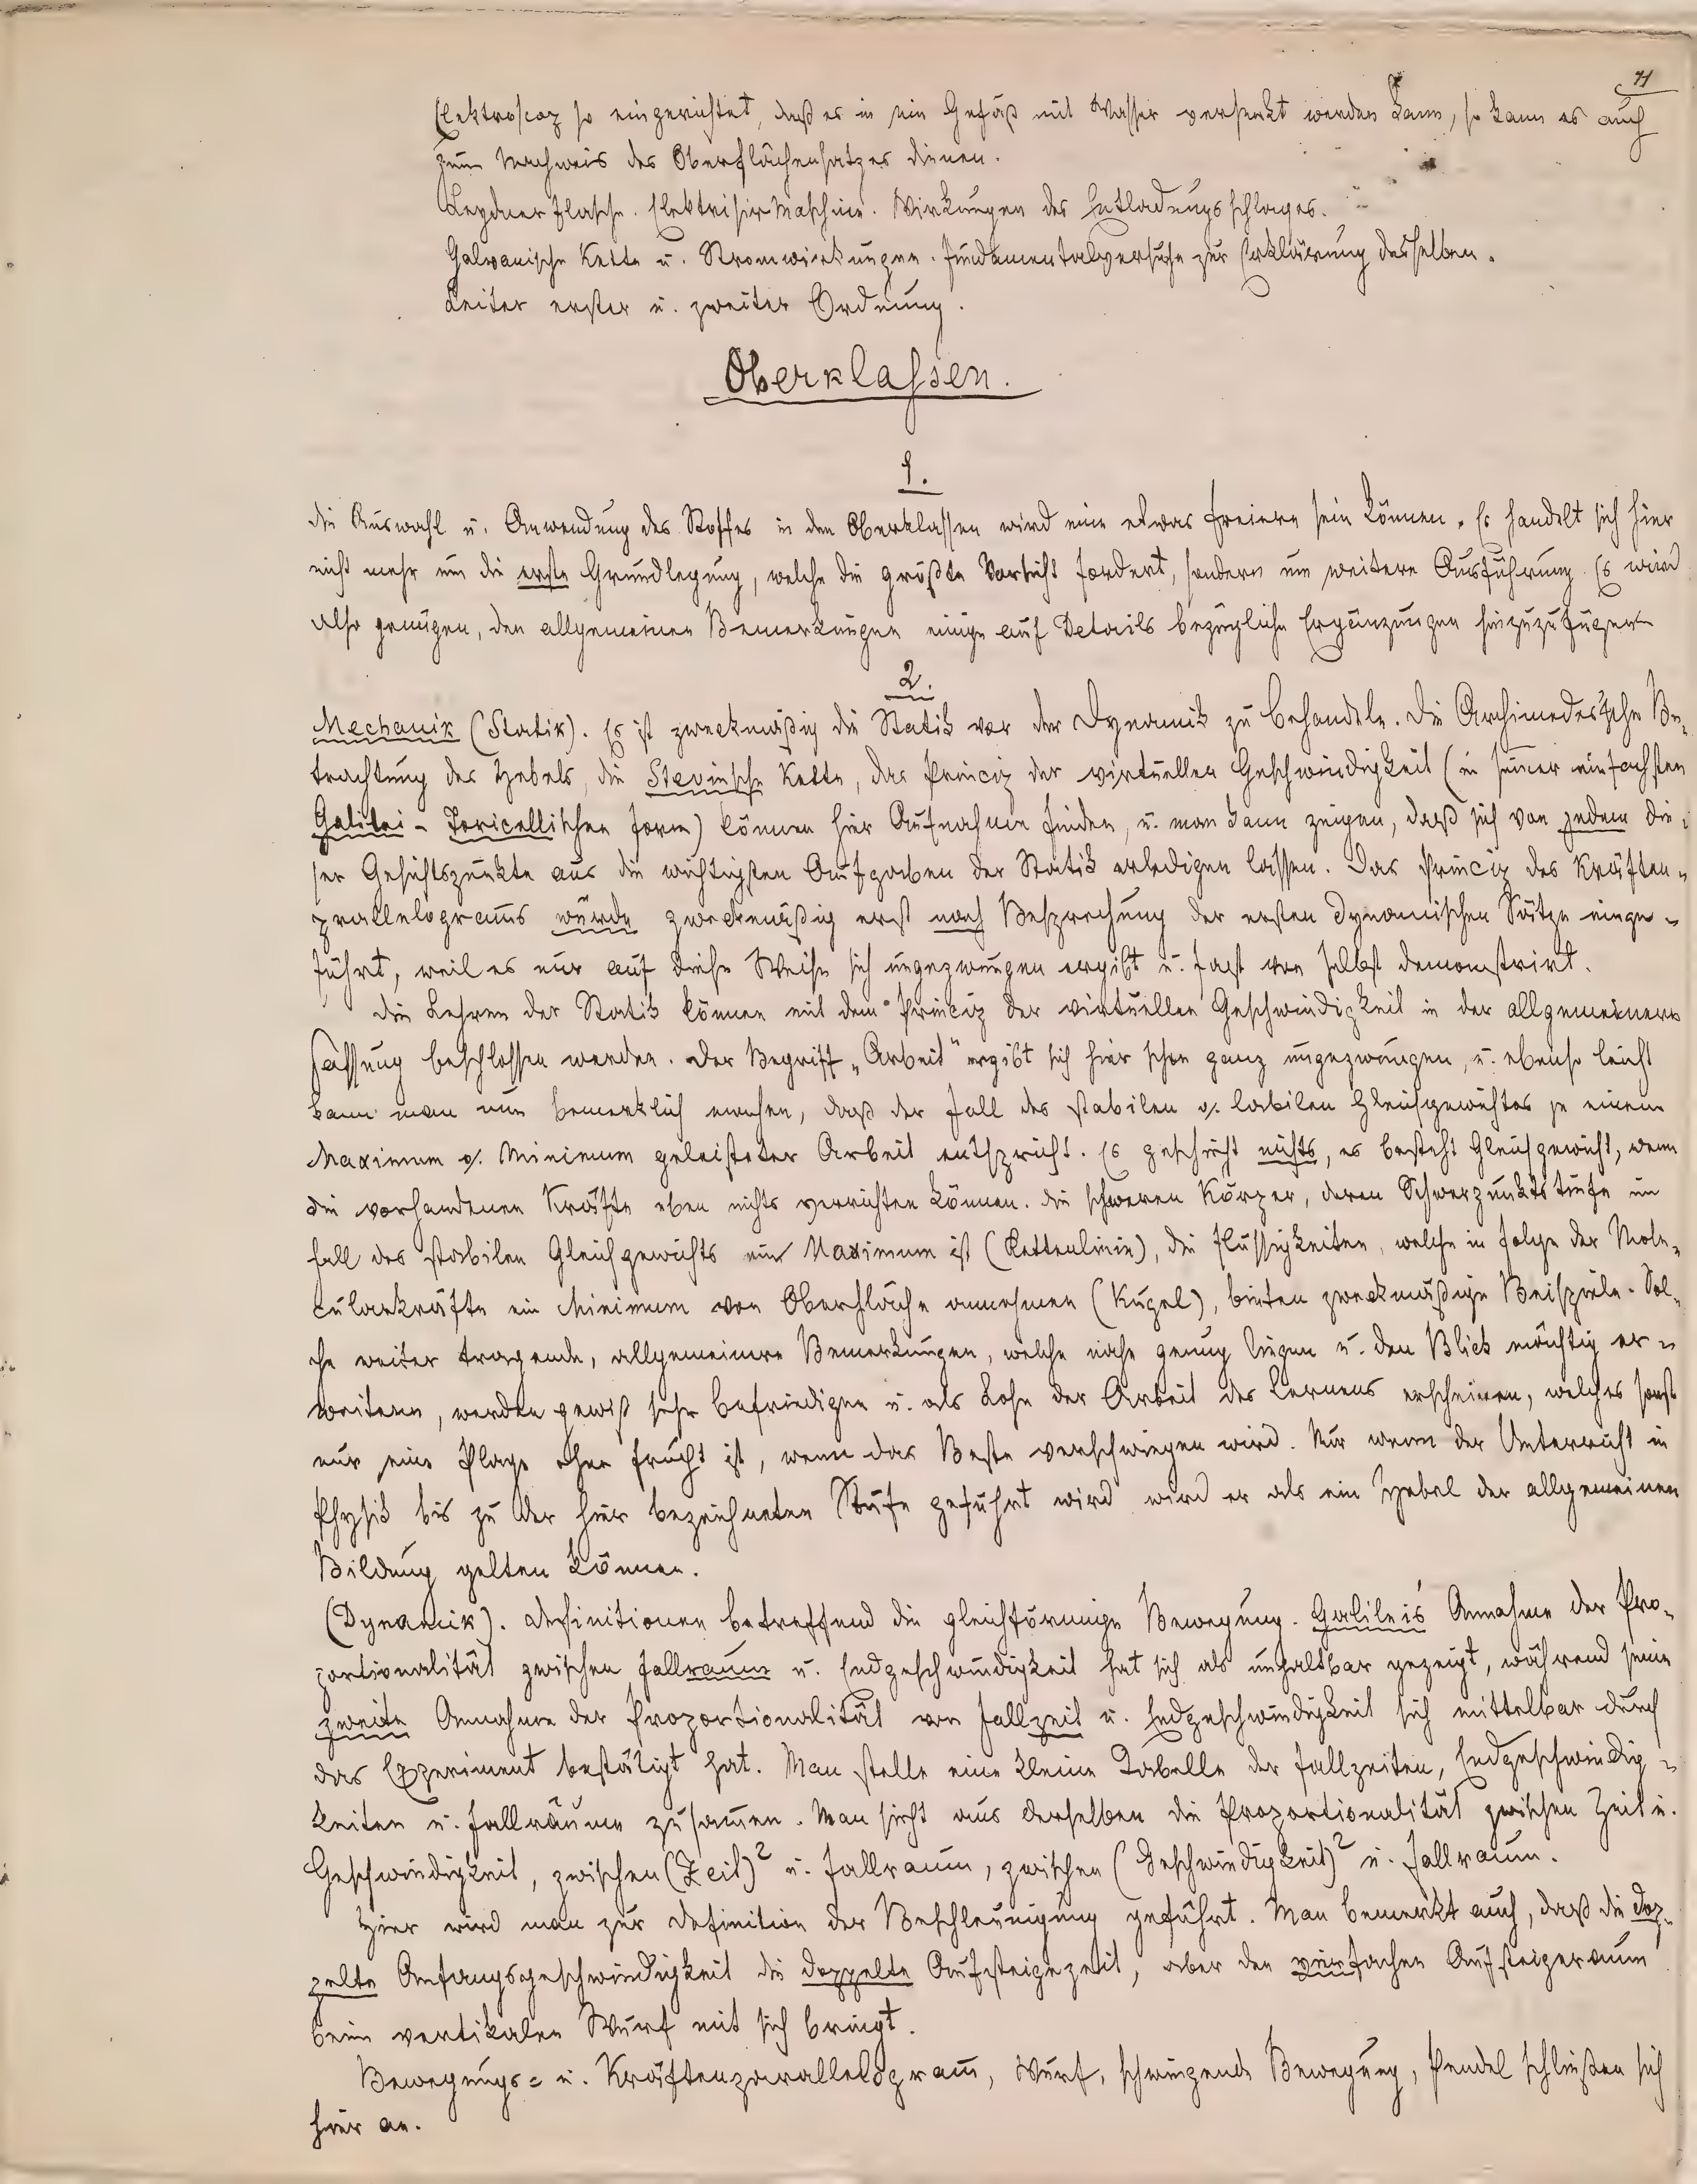 71
Elektroscop so eingerichtet, daß es in ein Gefäß mit Wasser versenkt werden kann, so kann es auch
zum Nachweis des Oberflächensatzes dienen.
Leydner Flasche. Elektrisir Maschine. Wirkungen des Entladungsschlages.
Galvanische Kette u. Stromwirkungen. Fundamentalversuche zur Erklärung desselben.
Leiter erster u. zweiter Ordnung.
Oberklassen.
1.
Die Auswahl u. Anwendung des Stoffes in den Oberklassen wird eine etwas freiere sein können. Es handelt sich hier
nicht mehr um die erste Grundlegung, welche die größte Vorsicht fordert, sondern um weitere Ausführung. Es wird
also genügen, den allgemeinen Bemerkungen einige auf Details bezügliche Ergänzungen hinzuzufügen
2.
Mechanik (Statik). Es ist zweckmäßig die Statik vor der Dynamik zu behandeln. Die Archimedes'sche Be-
trachtung des Hebels, die Stevinsche Kette, das Princip der virtuellen Geschwindigkeit (in seiner einfachsten
Galilei-Toricellischen Form) können hier Aufnahme finden, u. man kann zeigen, daß sich von jedem die-
ser Gesichtspunkte aus die wichtigsten Aufgaben der Statik erledigen lassen. Das Princip des Kräften-
prallelograms würde zweckmäßig erst nach Besprechung der ersten dynamischen Sätze einge-
führt, weil es nur auf diese Weise sich ungezwungen ergibt u. fast von selbst demonstrirt.
Die Lehren der Statik können mit dem Princip der virtuellen Geschwindigkeit in der allgemeinern
Fassung beschlossen werden. Der Begriff „Arbeit" ergibt sich hier schon ganz ungezwungen, u. ebenso leicht
kann man nun bemerklich machen, daß der Fall des stabilen o/. labilen Gleichgewichtes je einem
Maximum o/. Minimum geleisteter Arbeit entspricht. Es geschieht nichts, es besteht Gleichgewicht, wenn
die vorhandenen Kräfte eben nichts verrichten können. Die schweren Körper, deren Schwerpunktstiefe im
Fall des stabilen Gleichgewichts ein Maximum ist (Kettenlinie), die Flüssigkeiten, welche in Folge der Mole-
cularkräfte ein Minimum von Oberfläche annehmen (Kugel), bieten zweckmäßige Beispiele. Sol-
che weiter tragende, allgemeinere Bemerkungen, welche nahe genug liegen u. den Blick mächtig er-
weitern, werden gewiß sehr befriedigen u. als Lohn der Arbeit des Lernens erscheinen, welches sonst
nur eine Plage ohne Frucht ist, wenn das Beste verschwiegen wird. Nur wenn der Unterricht in
Physik bis zu der hier bezeichneten Stufe geführt wird wird er als ein Hebel der allgemeinen
Bildung gelten können.
(Dynamik). Definitionen betreffend die gleichförmige Bewegung. Galilei's Annahme der Pro-
portionalität zwischen Fallraum u. Endgeschwindigkeit hat sich als unhaltbar gezeigt, während seine
zweite Annahme der Proportionalität von Fallzeit u. Endgeschwindigkeit sich mittelbar durch
das Experiment bestätigt hat. Man stelle eine kleine Tabelle der Fallzeiten, Endgeschwindig-
keiten u. Fallräume zusammen. Man sieht aus derselben die Proportionalität zwischen Zeit u.
Geschwindigkeit, zwischen (Zeit)² u. Fallraum, zwischen (Geschwindigkeit)² u. Fallraum.
Hier wird man zur Definition der Beschleunigung geführt. Man bemerkt auch, daß die dop-
pelte Anfangsgeschwindigkeit die doppelte Aufsteigezeit, aber den vierfachen Aufsteigeraum
beim vertikalen Wurf mit sich bringt.
Bewegungs- u. Kräftenparallelogram, Wurf, schwingende Bewegung, Pendel schließen sich
hier an.